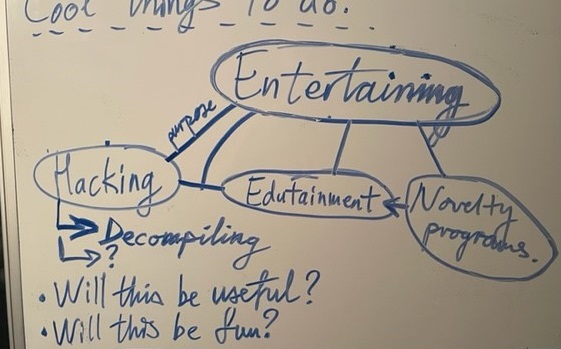 Cool things to do:
Entertaining
purpose
Hacking
Edutainment
Novelty
programs.
Decompiling
?
• Will this be useful?
• Will this be fun?